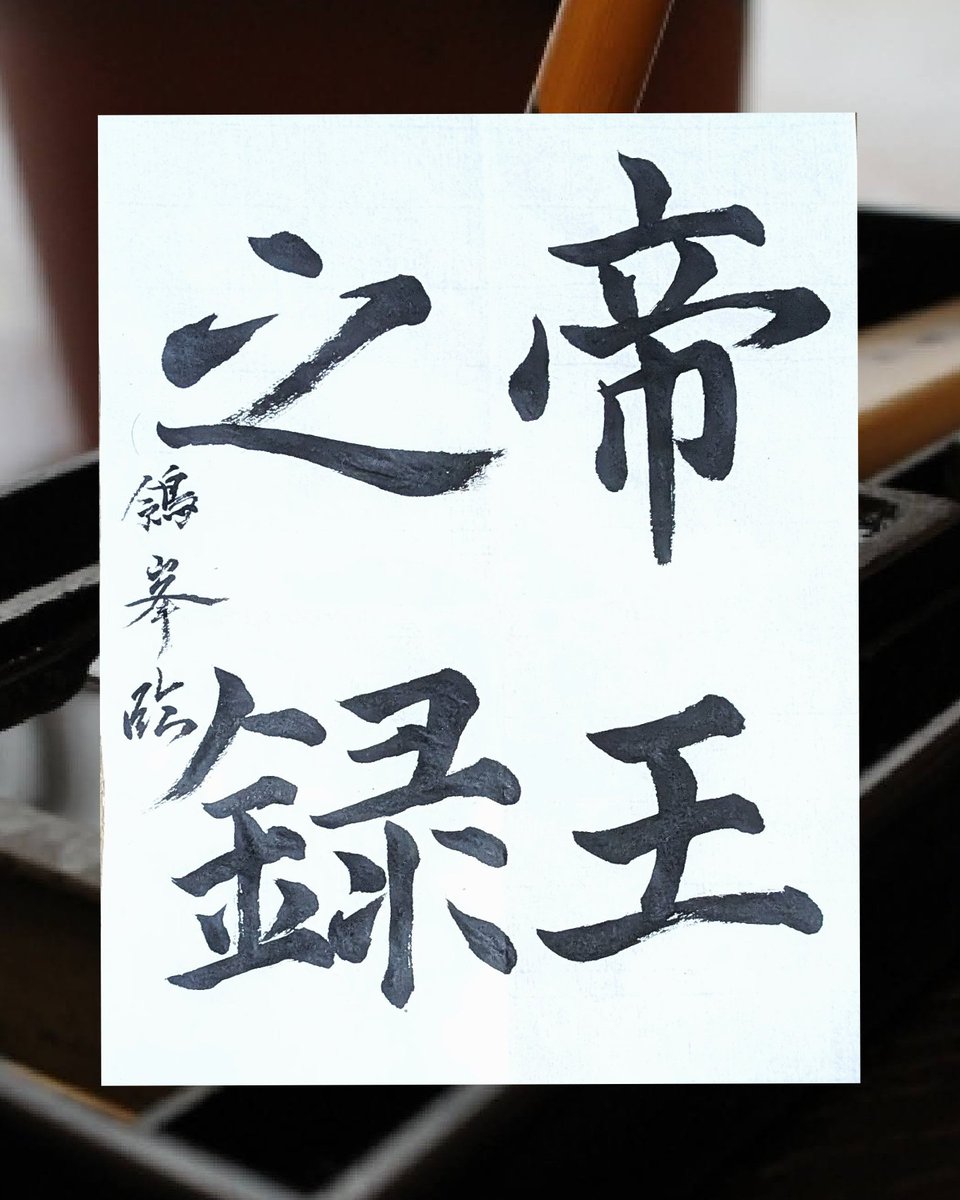 帝王
之録
鴒峯臨